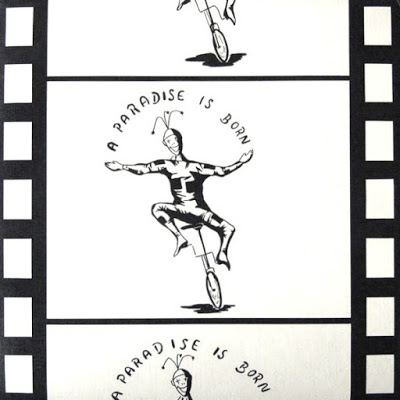 A PARADISE IS BORN
A PARADISE IS BORN